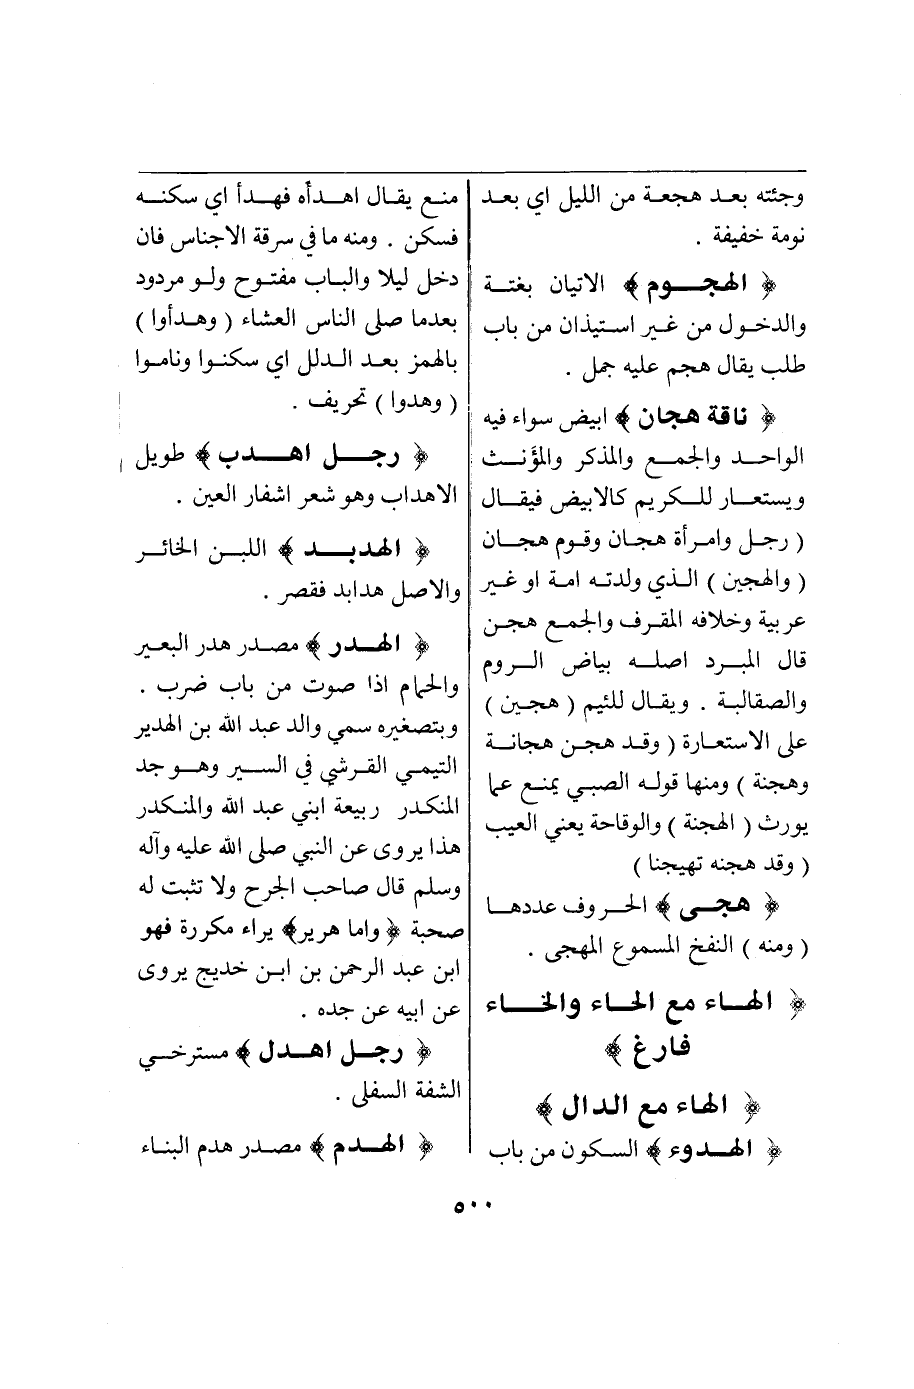 وجئته بعد هجعة من الليل اي بعد
نومة خفيفة .
﴿ الهجوم ﴾ الاتيان بغتة
والدخول من غير استيذان من باب
طلب يقال هجم عليه جمل .
﴿ ناقة هجان ﴾ ابيض سواء فيه
الواحد والجمع والمذكر والمؤنث
ويستعار للكريم كالابيض فيقال
( رجل وامرأة هجان وقوم هجان
( والهجين ) الذي ولدته امة او غير
عربية وخلافه المقرف والجمع هجن
قال المبرد اصله بياض الروم
والصقالبة . ويقال للئيم ( هجين )
على الاستعارة ( وقد هجن هجانة
وهجنة ) ومنها قوله الصبي يمنع عما
يورث ( الهجنة ) والوقاحة يعني العيب
( وقد هجنه تهيجنا )
﴿ هجى ﴾ الحروف عددها
( ومنه ) النفخ المسموع المهجى .
﴿ الهاء مع الحاء والخاء
فارغ ﴾
﴿ الهاء مع الدال ﴾
﴿ الهدوء ﴾ السكون من باب
منع يقال اهدأه فهدأ اي سكنه
فسكن . ومنه ما في سرقة الاجناس فان
دخل ليلا والباب مفتوح ولو مردود
بعدما صلى الناس العشاء ( وهدأوا )
بالهمز بعد الدلل اي سكنوا وناموا
( وهدوا ) تحريف .
﴿ رجل اهدب ﴾ طويل
الاهداب وهو شعر اشفار العين .
﴿ الهدبد ﴾ اللبن الخاثر
والاصل هدابد فقصر .
﴿ الهدر ﴾ مصدر هدر البعير
والحمام اذا صوت من باب ضرب .
وبتصغيره سمي والد عبد الله بن الهدير
التيمي القرشي في السير وهو جد
المنكدر ربيعة ابني عبد الله والمنكدر
هذا يروى عن النبي صلى الله عليه وآله
وسلم قال صاحب الجرح ولا تثبت له
صحبة ﴿ واما هرير ﴾ براء مكررة فهو
ابن عبد الرحمن بن ابن خديج يروى
عن ابيه عن جده .
﴿ رجل اهدل ﴾ مسترخي
الشفة السفلى .
﴿ الهدم ﴾ مصدر هدم البناء
٥٠٠